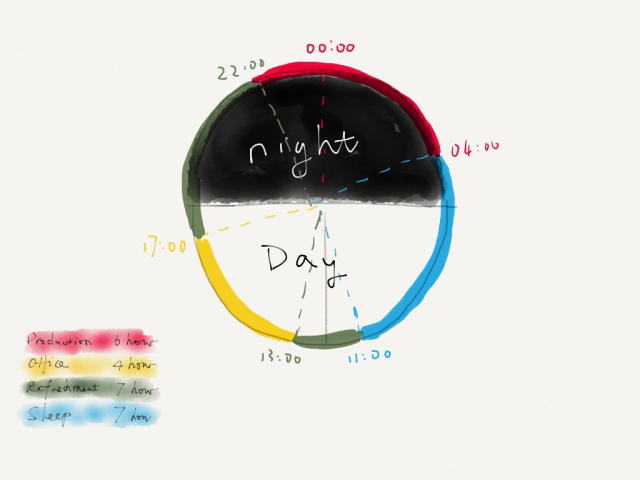 00:00
22:00
night
04:00
17:00
Day
13:00
11:00
Production 6 hour
Office 4 hour
Refreshment 7 hour
Sleep 7 hour